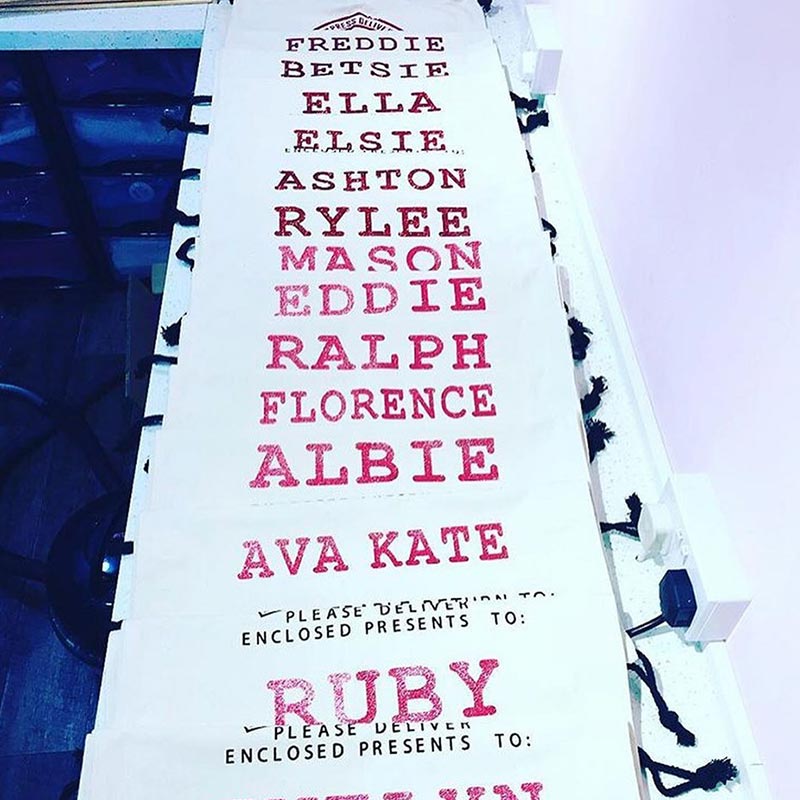 FREDDIE
BETSIE
ELLA
ELSIE
ASHTON
RYLEE
MASON
EDDIE
RALPH
FLORENCE
ALBIE
AVA KATE
PLEASE DELIVER
ENCLOSED PRESENTS TO:
RUBY
PLEASE DELIVER
ENCLOSED PRESENTS TO: